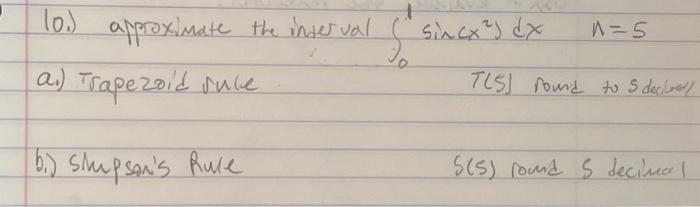 10.) approximate the interval ∫₀¹ sin(x²) dx n=5
a.) Trapezoid rule T(5) round to 5 decimal
b.) Simpson's Rule S(5) round 5 decimal